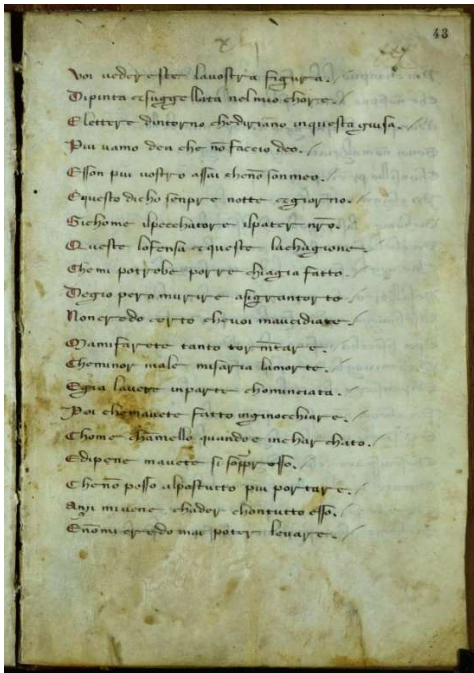 43
Voi vedereste lavostra figura.
Dipinta esuggellata nelmio chore.
Elettere dintorno chediriano inquesta guisa.
Piu vamo deu che nō faccio deo.
Esson piu vostro assai chenō sonmeo.
Equesto dicho senpre notte egiorno.
Sichome ilpechatore ilpater nr̄o.
Queste lofensa equeste lachagione.
Chemi potrebe porre chiagia fatto.
Degio pero murire asigrantorto
Noncredo certo chevoi maucidiate.
Mamifarete tanto tormētare.
Cheminor male misaria lamorte.
Egia lavete inparte chominciata.
Poi chemavete fatto inginocchiare.
Chome chamello quandoe inchar chato.
Edipene mavete si sopr osso.
Chenō posso alpostutto piu portare.
Anzi mivene chader chontutto esso.
Enōmi credo mai poter levare.